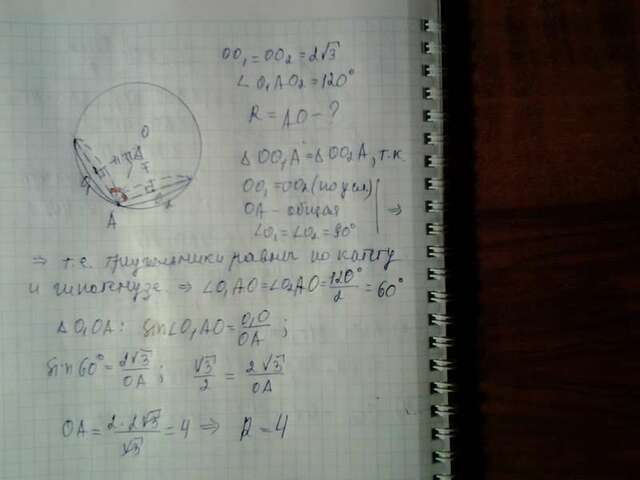 OO₁ = OO₂ = 2√3
∠O₁AO₂ = 120°
R = AO - ?
O
A
ΔOO₁A = ΔOO₂A, т.к.
OO₁ = OO₂ (по усл)
OA - общая ⇒
∠O₁ = ∠O₂ = 90°
⇒ т.е. треугольники равны по катету
и гипотенузе ⇒ ∠O₁AO = ∠O₂AO = 120°/2 = 60°
ΔO₁OA: sin∠O₁AO = O₁O/OA ;
sin 60° = 2√3/OA ; √3/2 = 2√3/OA
OA = 2·2√3/√3 = 4 ⇒ R = 4